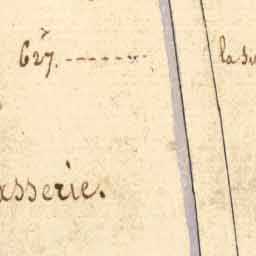 627.
la
asserie.